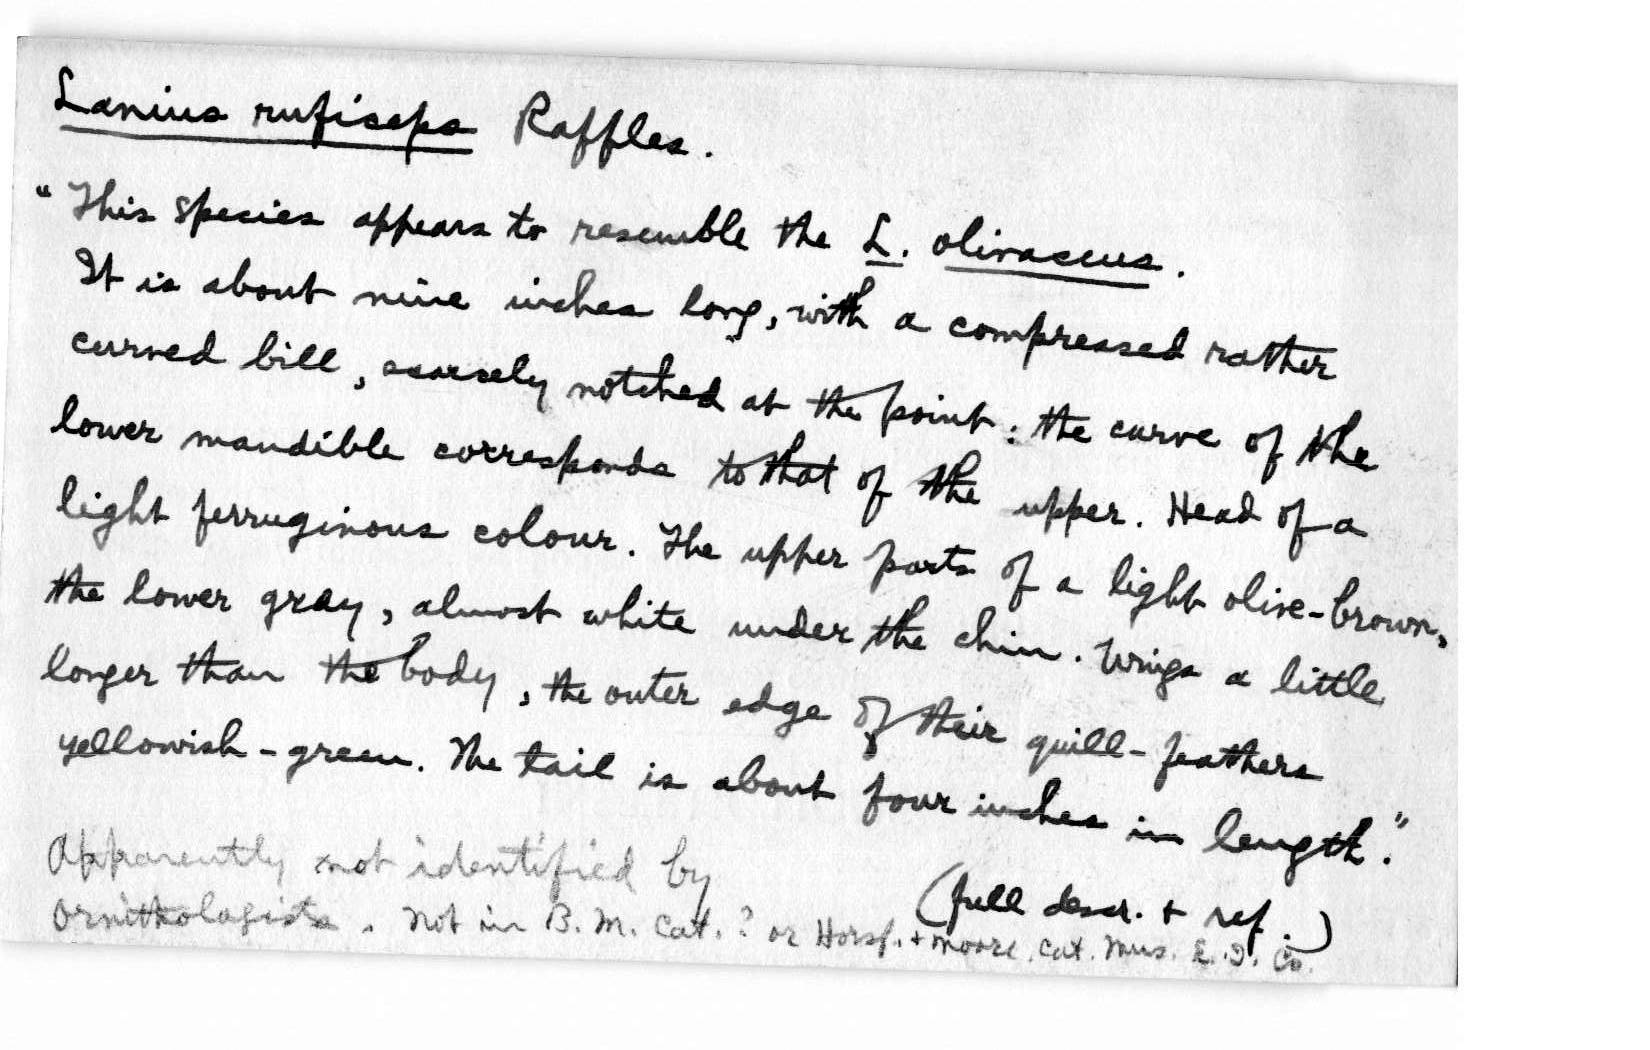 Lanius ruficeps Raffles.
"This species appears to resemble the L. olivaceus.
It is about nine inches long, with a compressed rather
curved bill, scarcely notched at the point: the curve of the
lower mandible corresponds to that of the upper. Head of a
light ferruginous colour. The upper parts of a light olive-brown,
the lower gray, almost white under the chin. Wings a little
longer than the body, the outer edge of their quill-feathers
yellowish-green. The tail is about four inches in length."
(full descr. + ref.)
Apparently not identified by
ornithologists. Not in B.M. Cat.? or Horsf. + Moore. Cat. Mus. E.I. Co.